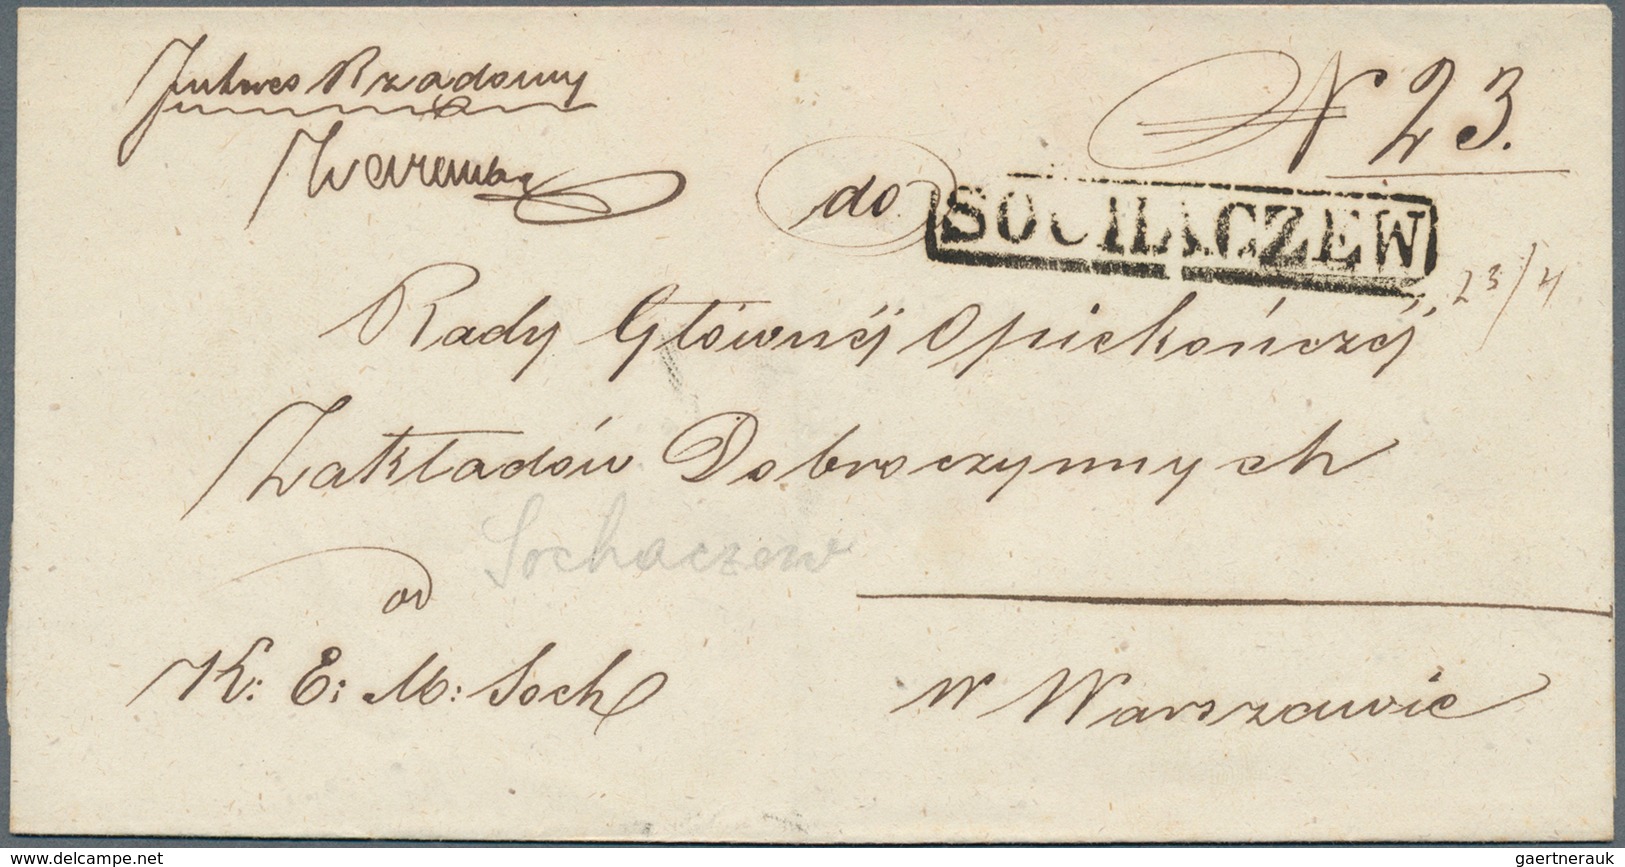 Interes Rządowy
Zaremba
N 23.
do
SOCHACZEW
23/4
Rady Głównéj Opiekończéj
Zakładów Dobroczynnych
Sochaczew
od
K: E: M: Soch
w Warszawie
www.delcampe.net
gaertnerauk